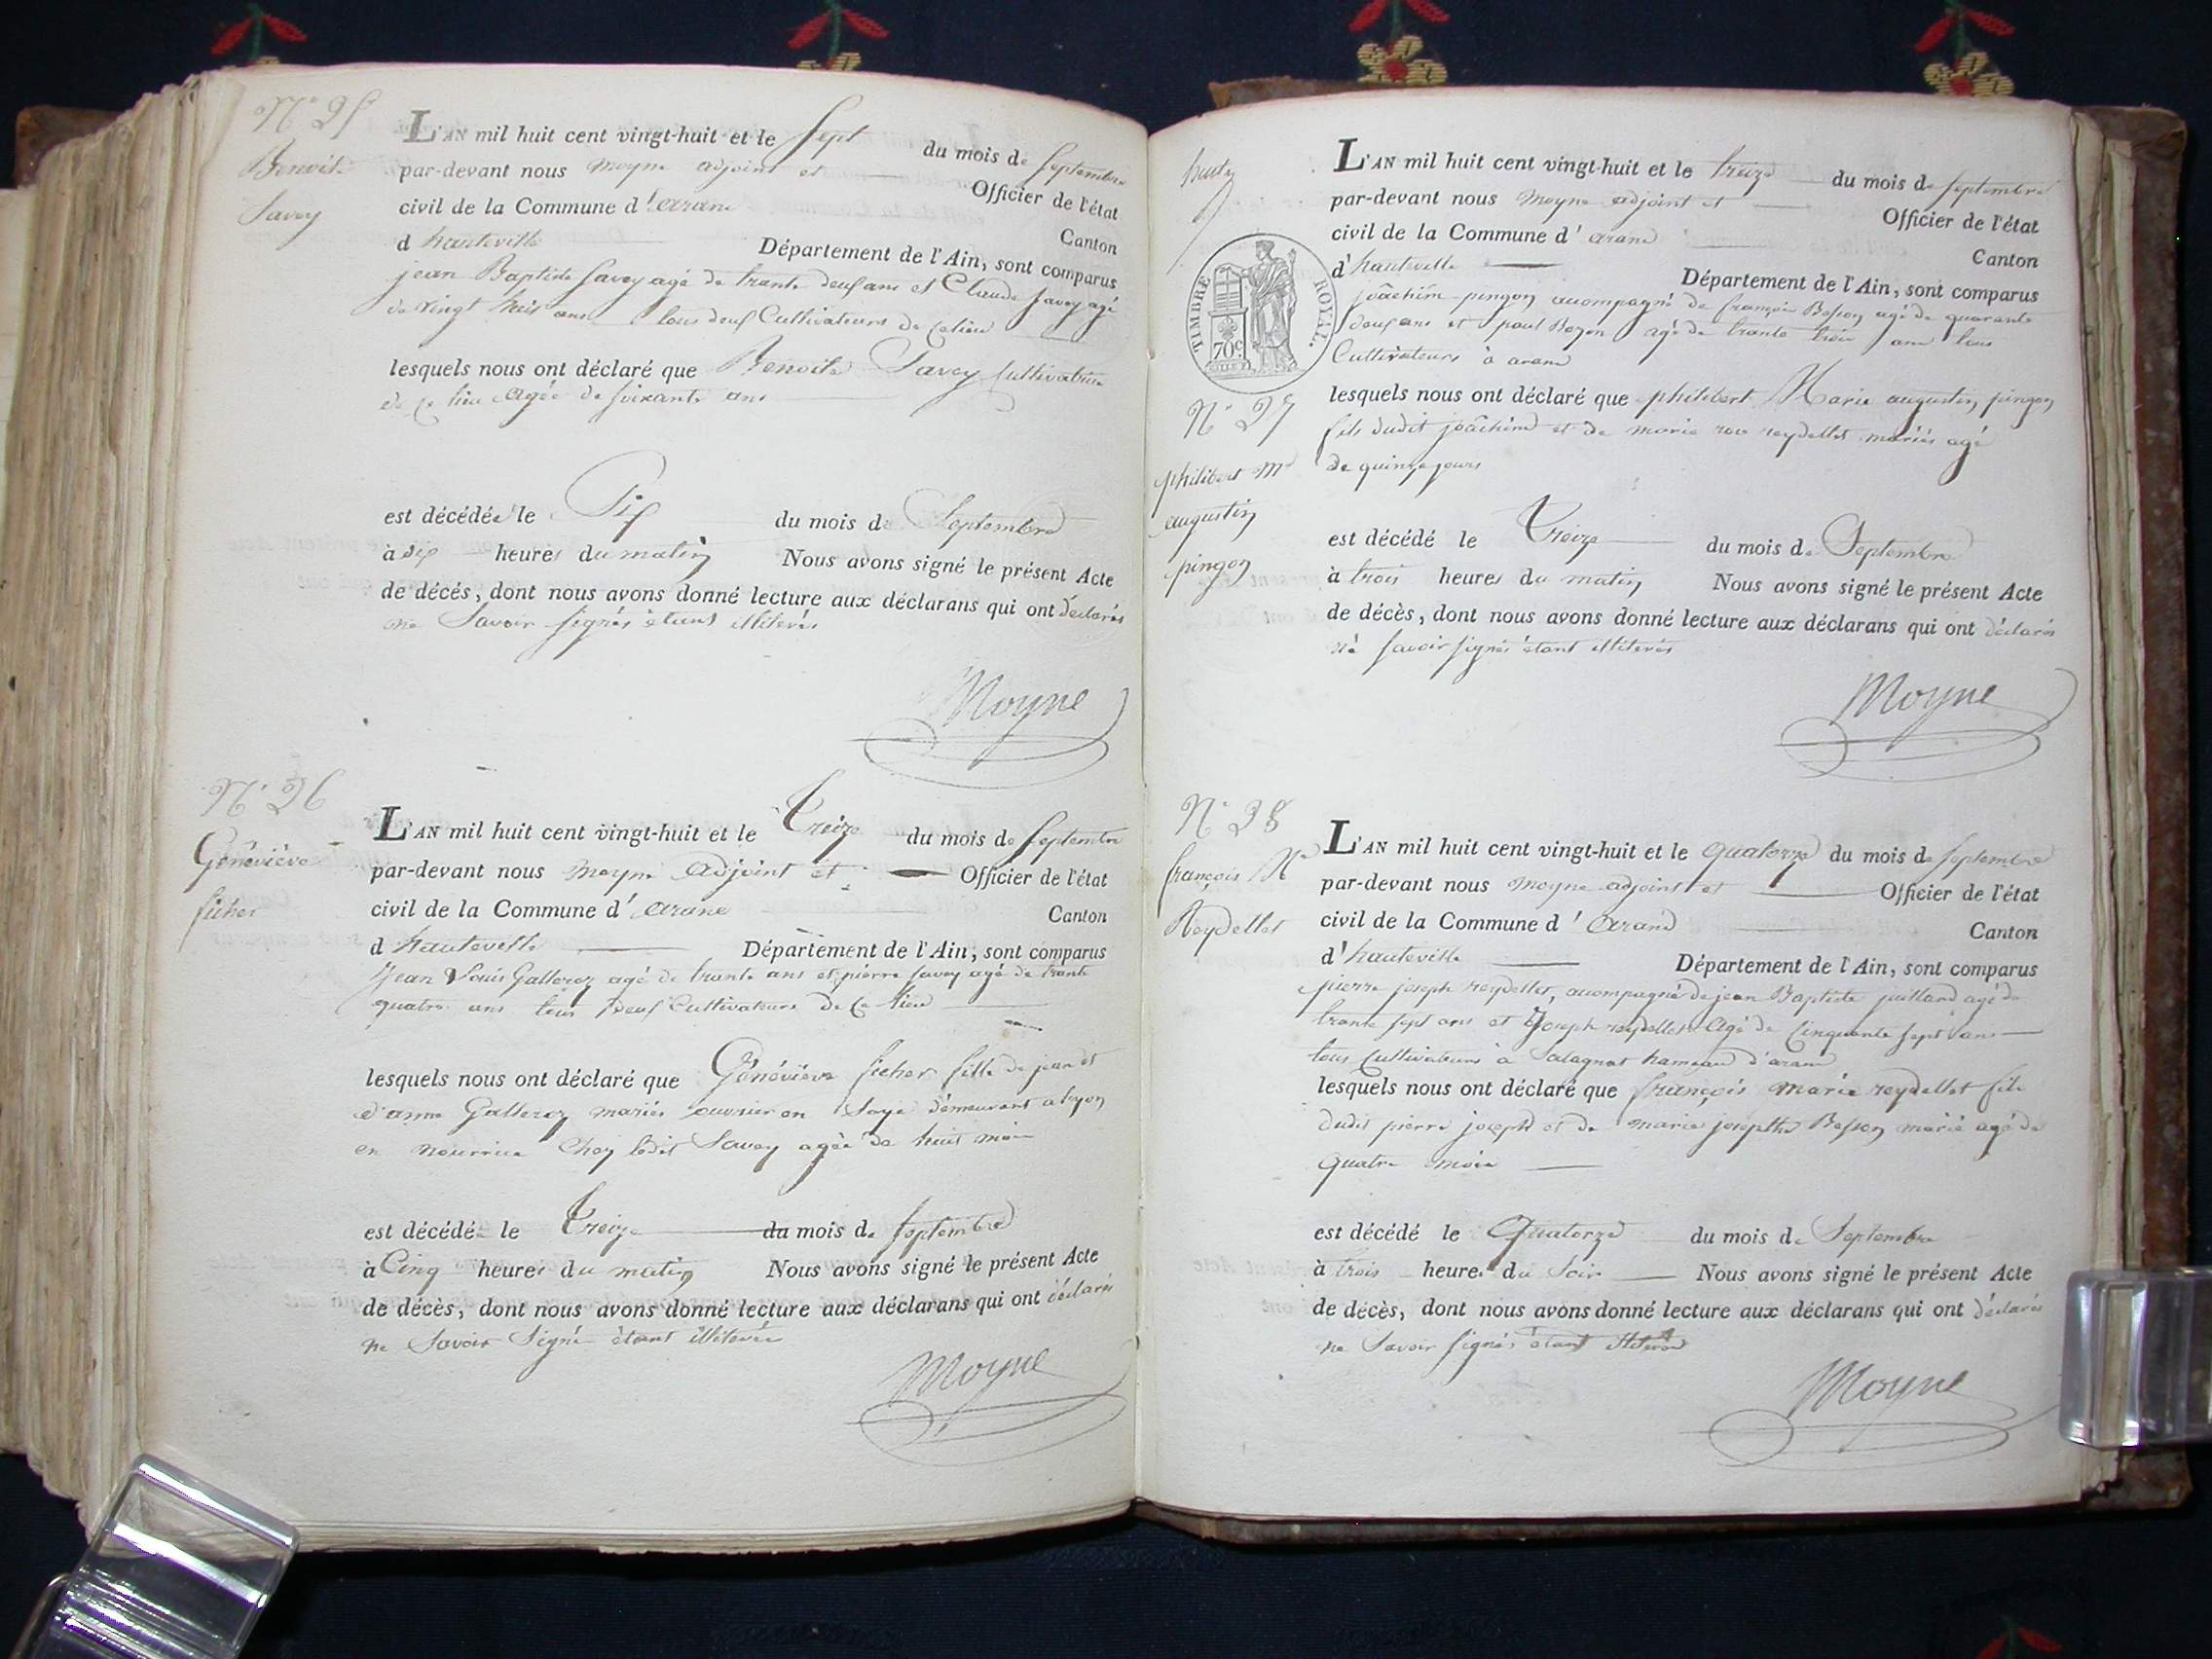 N° 25
Benoite
Savey
L'AN mil huit cent vingt-huit et le sept du mois de septembre
par-devant nous moyne adjoint et Officier de l'état
civil de la Commune d'arane Canton
d hauteville Département de l'Ain, sont comparus
jean Baptiste Savey agé de trante deux ans et Claude Savey agé
de vingt huit ans tous deux Cultivateurs de ce lieu
lesquels nous ont déclaré que Benoite Savey Cultivatrice
de ce lieu agée de soixante ans
est décédée le Six du mois de Septembre
à dix heures du matin Nous avons signé le présent Acte
de décés, dont nous avons donné lecture aux déclarans qui ont déclarés
ne Savoir signés étant illiterés
Moyne
N° 26
Généviève
ficher
L'AN mil huit cent vingt-huit et le Treize du mois de septembre
par-devant nous moyne adjoint et Officier de l'état
civil de la Commune d'arane Canton
d hauteville Département de l'Ain, sont comparus
Jean Louis Galleroz agé de trante ans et pierre Savey agé de trante
quatre ans tous deux Cultivateurs de ce lieu
lesquels nous ont déclaré que Généviève ficher fille de jean et
d'anne Galleroz mariés ouvrier en Soye démeurant a lyon
en nourrice chez ledit Savey agée de huit mois
est décédée le Treize du mois de septembre
à Cinq heures du matin Nous avons signé le présent Acte
de décès, dont nous avons donné lecture aux déclarans qui ont déclarés
ne Savoir Signé étant illiterés
Moyne
TIMBRE ROYAL.
70c.
N° 27
philibert Me
augustin
pingon
L'AN mil huit cent vingt-huit et le treize du mois de septembre
par-devant nous moyne adjoint et Officier de l'état
civil de la Commune d'arand Canton
d'hauteville Département de l'Ain, sont comparus
joâchim pingon acompagné de françois Besson agé de quarante
deux ans et paul Bozon agé de trante trois ans tous
Cultivateurs à arand
lesquels nous ont déclaré que philibert Marie augustin pingon
fils dudit joâchim et de marie rose reydellet mariés agé
de quinze jours
est décédé le Treize du mois de Septembre
à trois heures du matin Nous avons signé le présent Acte
de décès, dont nous avons donné lecture aux déclarans qui ont déclarés
né savoir signés étant illiterés
Moyne
N° 28
françois Me
Reydellet
L'AN mil huit cent vingt-huit et le quatorze du mois de septembre
par-devant nous moyne adjoint et Officier de l'état
civil de la Commune d'arand Canton
d'hauteville Département de l'Ain, sont comparus
pierre joseph reydellet, acompagné de jean Baptiste juilland agé de
trante sept ans et joseph reydellet agé de Cinquante sept ans
tous Cultivateurs à Salagnat hameau d'arand
lesquels nous ont déclaré que françois marie reydellet fils
dudit pierre joseph et de marie josephe Besson marié agé de
quatre mois
est décédé le Quatorze du mois de Septembre
à trois heures du Soir Nous avons signé le présent Acte
de décès, dont nous avons donné lecture aux déclarans qui ont déclarés
ne Savoir signés étant
Moyne